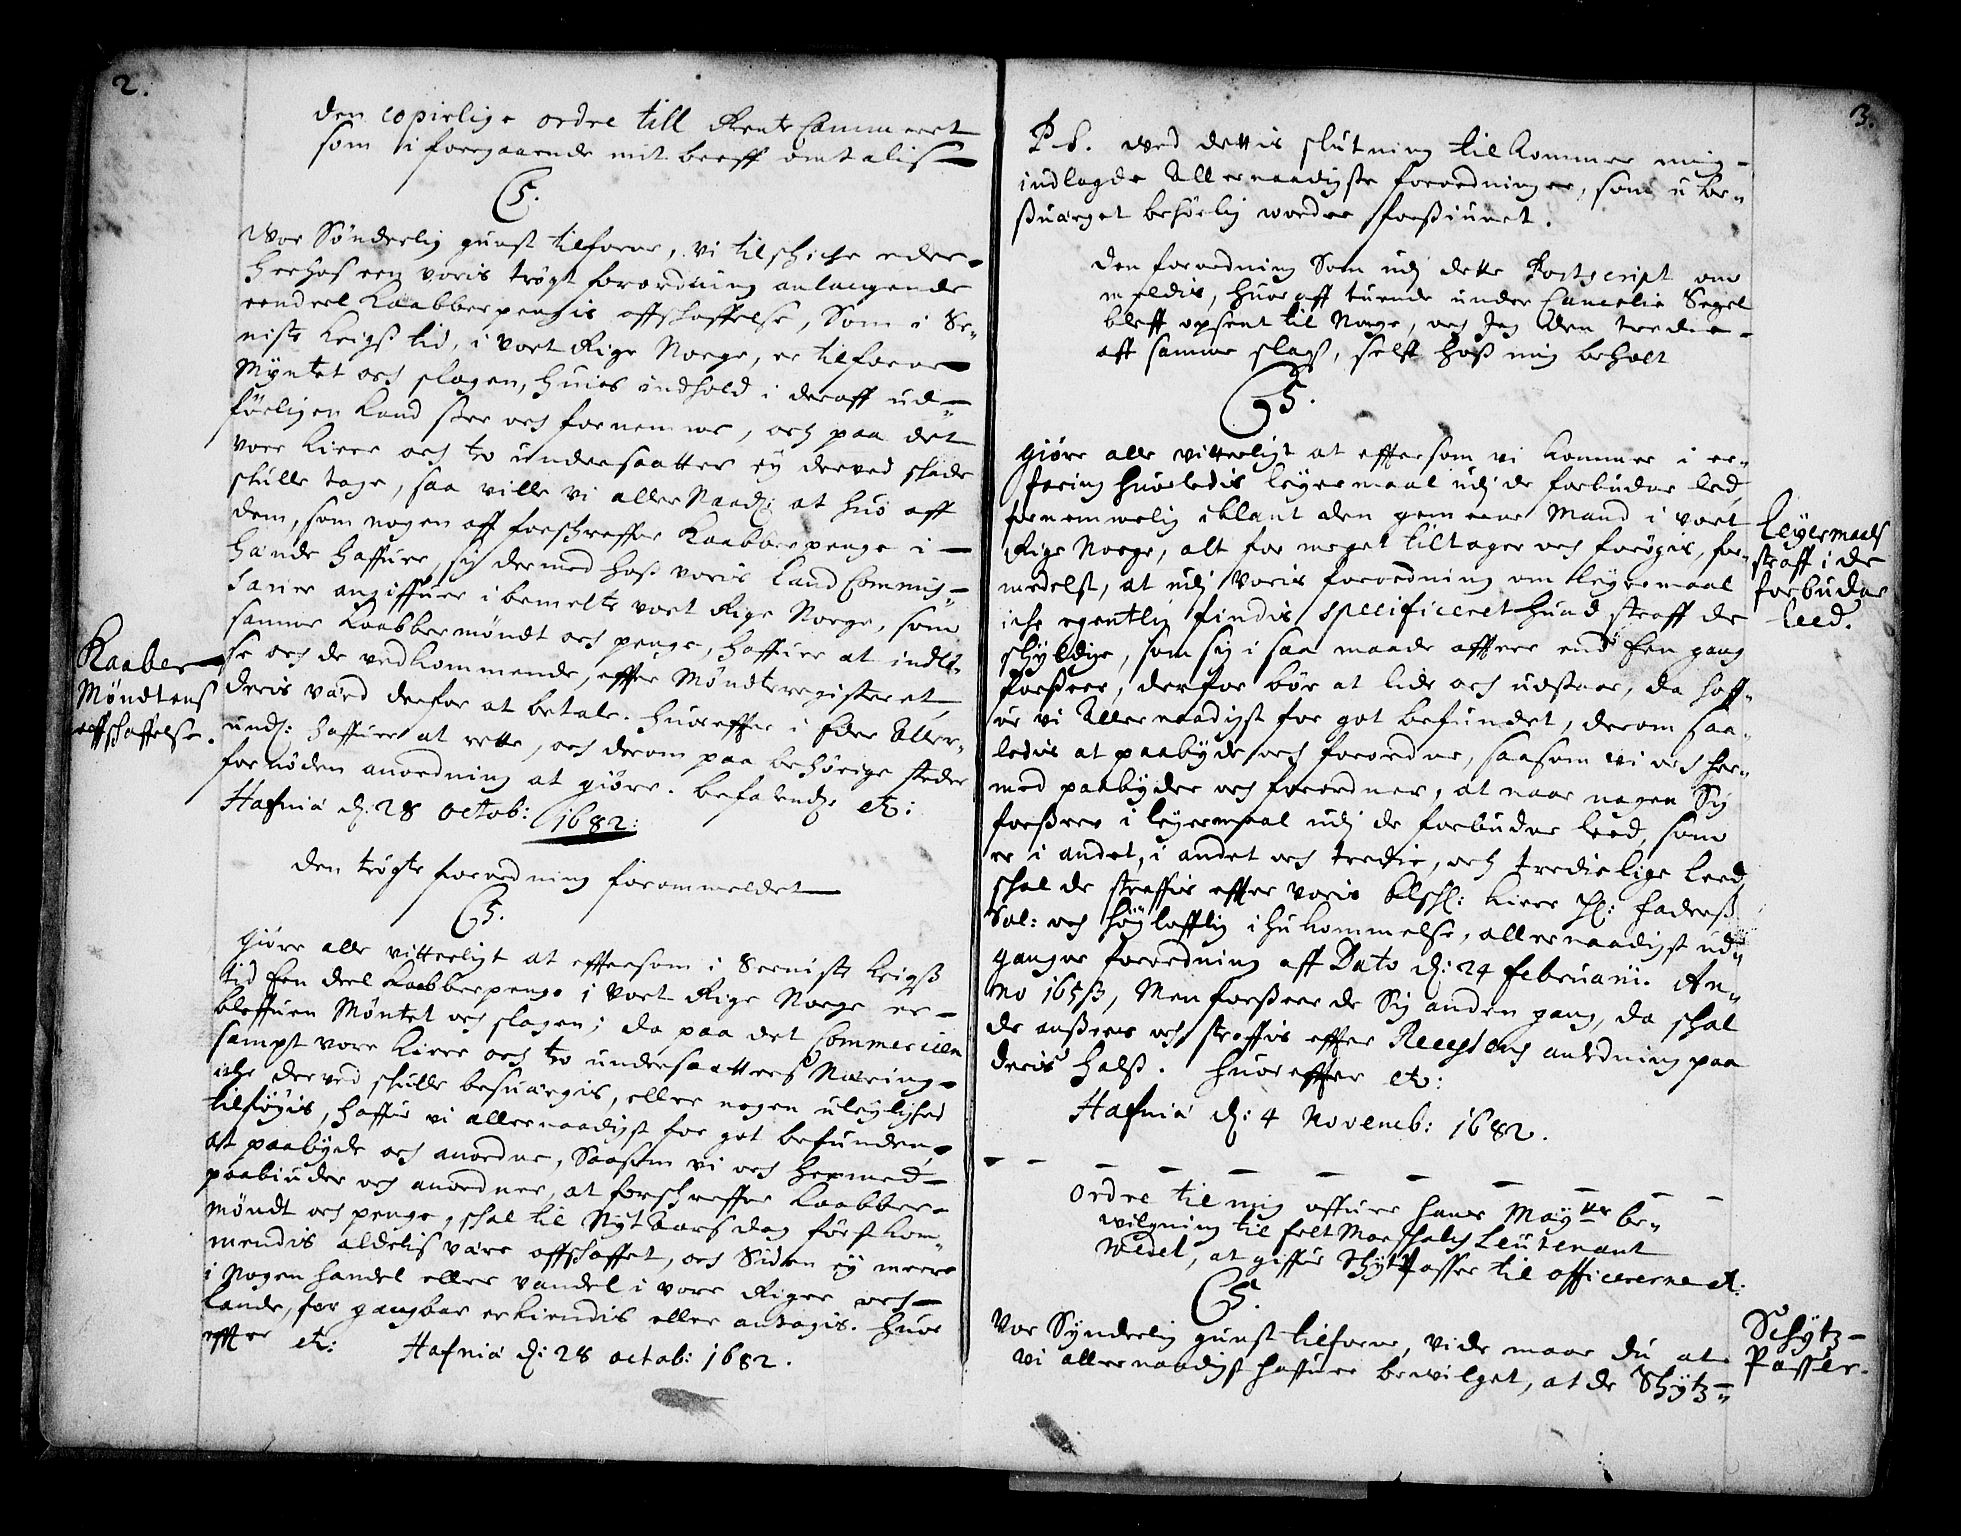 2.
den copielige ordre till Rente Cammeret
som i foregaaende mit breff omtalis
C5.
Vor Sønderlig gunst tilforne, vi tilschicke eder
herhos een voris trögt forordning anlangende
eendeel Kaabberpengis affschaffelse, Som i Se„
niste Krigss tid, i vort Rige Norge, er tilforne
Myntet och slagen, huis indhold i deraff ud„
förligen kand see och fornemme, och paa det
vore kiere och tro undersaatter ey derved skade
skulle tage, saa ville vi aller Naad: at huo aff
dem, som nogen aff forschreffne Kaabberpenge i
hænde haffuer, sig dermed hoss voris Land Commis„
sarier angiffuer i bemelte vort Rige Norge, som
samme Kaabbermöndt och penge, haffuer at indlö„
se och de vedkommende, effter Möndteregisteret,
deris værd derfor at betale. Huoreffter i Eder Aller„
und: haffuer at rette, och derom paa behörige steder
fornöden anordning at giöre. Befalend: etc:
Hafniæ d: 28 octob: 1682:
Kaaber
Möndtens
affschaffelse.
den trögte forordning forommeldet
C5.
Giöre alle vitterligt at effersom i Seeniste Krigss
tid Een deel Kaabberpenge i Vort Rige Norge er
bleffuen Möntet och slagen; da paa det Commercien
sampt vore kiere och tro undersaatters Næring
icke derved skulle besværgis, eller nogen uleylighed
tilföyis, haffue vi allernaadigst for got befunden,
at paabyde och anordne, Saasom vi och hermed
paabiuder och anordner, at forschreffne Kaabber
möndt och penge, schal til Nyt Aars dag först kom„
mendis aldelis være affschaffet, och Siden ey meere
i Nogen handel eller vandel i vore Riger och
Lande, for gangbar erkiendis eller antagis. Huor
effter etc: Hafniæ d: 28 octob: 1682.
3.
P.S. ved dettis slutning tilkommer mig
indlagde Allernaadigste forordninger, som u for„
ssvarget behörlig vorder forssiunet.
den forordning Som udj dette Postscript om
meldis, huoraff tuende under Cancelie Segel
bleff opsent til Norge, och Jeg den tredie
aff samme slags, selff hoss mig beholt
C5.
Giöre alle vitterligt at effersom vi kommer i er„
faring huorledis leyermaal udj de forbudne led,
fornemmelig iblant den gemeene Mand i vort
Rige Norge, alt for meget tiltager och forögis, for„
medelst, at udj Voris forordning om leyermaal
icke egentlig findis specificeret hvad straff de
skyldige, som sig i saa maade offter end Een gang
forsseer, derfor bör at lide och udstaae, da haff„
ue vi Allernaadigst for got befundet, derom saa„
ledis at paabyde och forordne, saasom vi och her„
med paabyder och forordner, at naar nogen Sig
forsseer i leyermaal udj de forbudne leed, som
er i andet, i andet och tredie, och tredie lige leed,
schal de straffis effter voris Elsch: kiere H: Faderss
Sal: och höylofflig ihukommelse, allernaadigst ud„
gangne forordning aff Dato d: 24 februarii. An„
no 165ß, Men forsseer de Sig anden gang, da schal
de ansees och straffis effter Recessens anordning paa
deris halss. Huoreffter etc:
Hafniæ d: 4 Novemb: 1682.
Leyermaals
straff i de
forbudne
leed.
Ordre til mig offuer hans May^tts be„
vilgning til felt Marschalch Leutenant
Wedel, at giffue Schytz Passer til officererne etc:
C5.
Vor Synderlig gunst tilforne, vide maae du at
vi allernaadigst haffuer bevilget, at de Schytz„
Schytz
Passer.